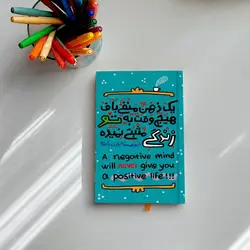 یک ذهن منفی‌باف
هیچ وقت به تو
زندگی
مثبتی نمیده
A negative mind
will never give you
a positive life!!!